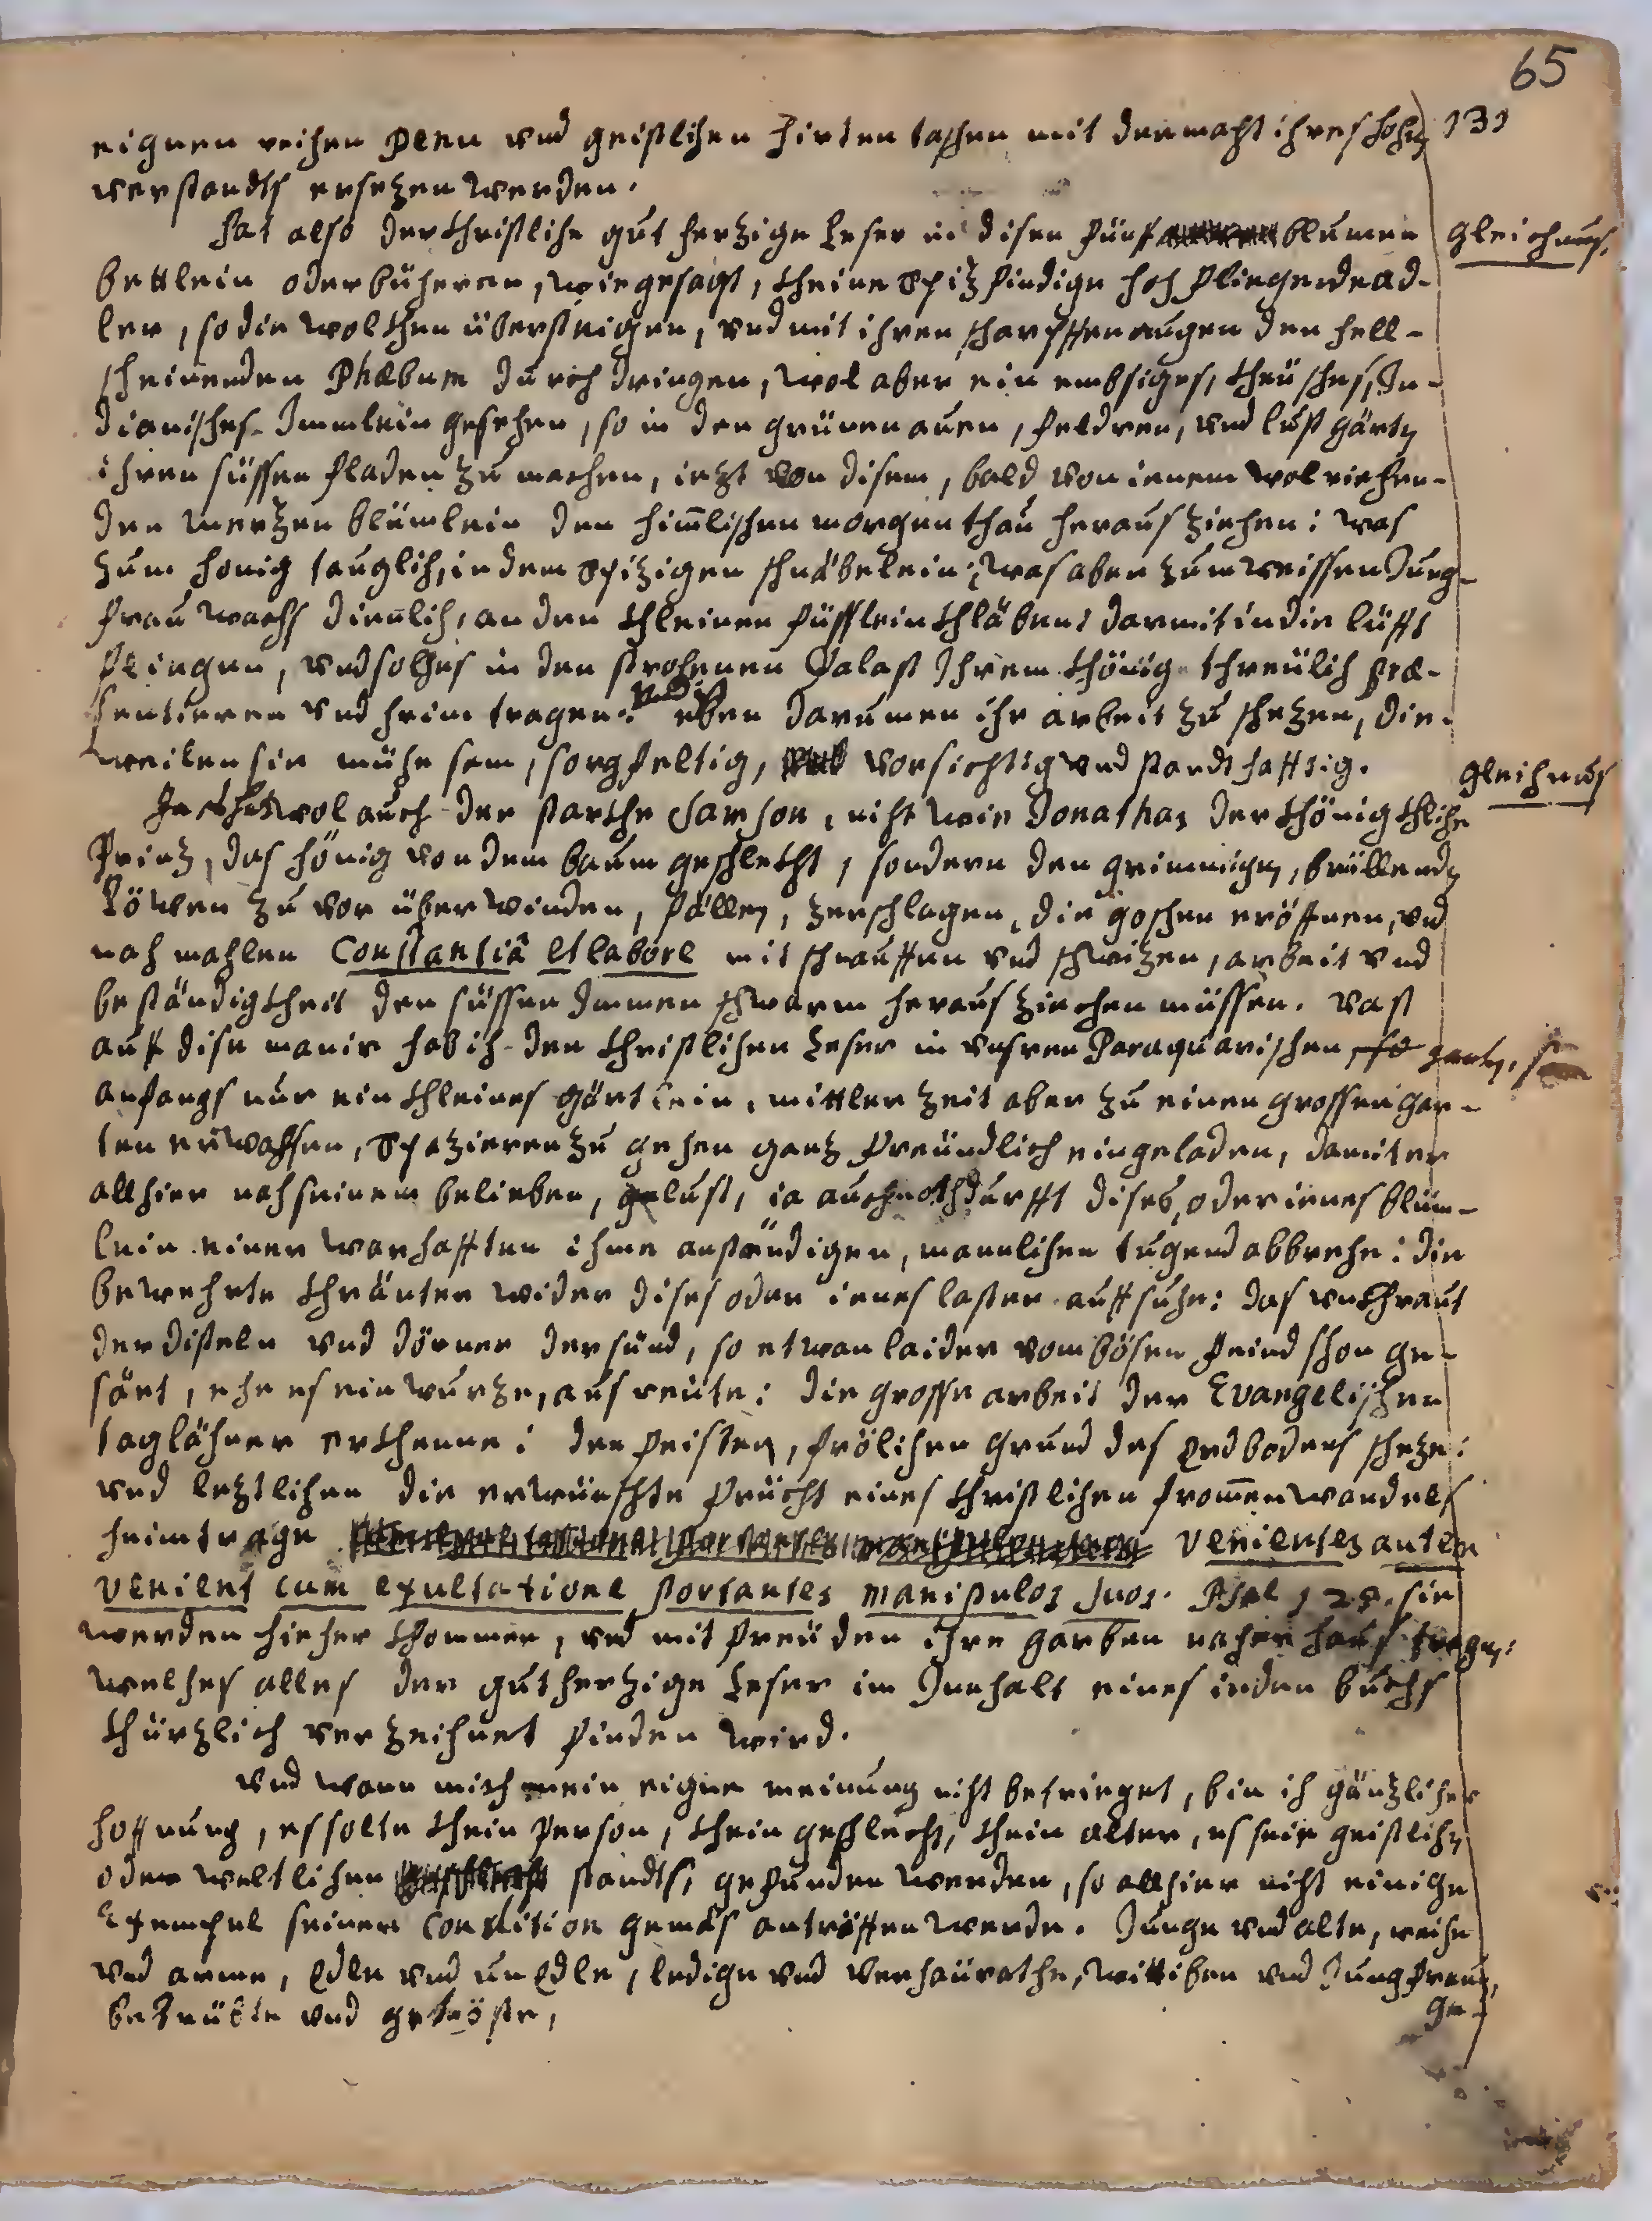 65
131
eignen reichen Penn vnd geistlichen hirten taschen mit der macht ihres hohen
verstandts ersezen werden.
Hat also der Christliche gut herzige Leser in disen fünf blumen
gleichnus.
bettlein oder bücheren, wie gesagt, kheine Spizfindige hoch fliegende ad-
ler, so die wolkhen übersteigen, vnd mit ihren scharpffen augen den hell-
scheinenden Phœbum durch dringen, wol aber ein embsiges, kheüsches, In-
dianisches Immlein gesehen, so in den grünen auen, feldren, vnd lust gärten
ihren süssen fladen zu machen, iezt von disem, bald von ienem wolriechen-
den merzen blümlein den himlischen morgen thau heraus ziehen: was
zum honig tauglich, in dem Spizigen schnäbelein; was aber zum weissen Jung-
frau wachs dienlich, an den kleinen füsslein khläbent darmit in die lüfft
fliegen, vnd solches in den strohenen Palast Ihrem khönig threülich præ-
sentieren vnd heim tragen: vnd ist eben darumen ihr arbeit zu schezen, die-
weilen sie mühesam, sorgfeltig, vorsichtig vnd standthafftig.
gleichnus
wol auch der starkhe Samson, nicht wie Jonathas der khönigkhliche
Prinz, das hönig von dem baum geschlekht, sondern den grimmigen, brüllenden
Löwen zu vor überwinden, fällen, zerschlagen, die goschen eröffnen, vnd
nachmahlen Constantiâ et labore mit schnauffen vnd schwizen, arbeit vnd
beständigkheit den süssen Immen schwarm heraus ziechen müssen. vast
auff dise manir hab ich den Christlichen Leser in vnsren Paraquarischen garten, so
anfangs nur ein khleines gärtlein, mittler zeit aber zu einen grossen gar-
ten erwachsen, Spazieren zu gehen ganz freündlich eingeladen, damit er
allhier nach seinem belieben, gelust, ia auch nothdurfft dises, oder ienes blüm-
lein einer warhafften ihme anständigen, mannlichen tugend abbreche: die
bewehrte khräuter wider dises oder ienes laster auffsuche: das vnkhraut
der disteln vnd dörner der sünd, so etwan laider vom bösen feind schon ge-
säet, ehe es ein wurze, ausreüte: die grosse arbeit der Evangelischen
taglähner erkhenne: den feisten, frölichen grund des erdbodens scheze:
vnd lezlichen die erwünschte frücht eines Christlichen frommen wandels
heimtrage venientes autem
venient cum exultatione portantes manipulos suos. Psal 125. sie
werden hieher khommen, vnd mit freüden ihre garben nacher haus tragen:
welches alles der gutherzige Leser im Innhalt eines ieden buchs
khürzlich verzeichnet finden wird.
vnd wann mich mein eigne meinung nicht betrieget, bin ich gänzlicher
hoffnung, es solte khein Person, khein geschlecht, khein alter, es seie geistlichen
oder weltlichen standts, gefunden werden, so allhier nicht einiche
Exempel seiner Condition gemäs antröffen werde. Junge vnd alte, reiche
vnd arme, edle vnd unedle, ledige vnd verheürathe, Wittiben vnd Jungfrauen,
betrübte vnd getröste,
ge-